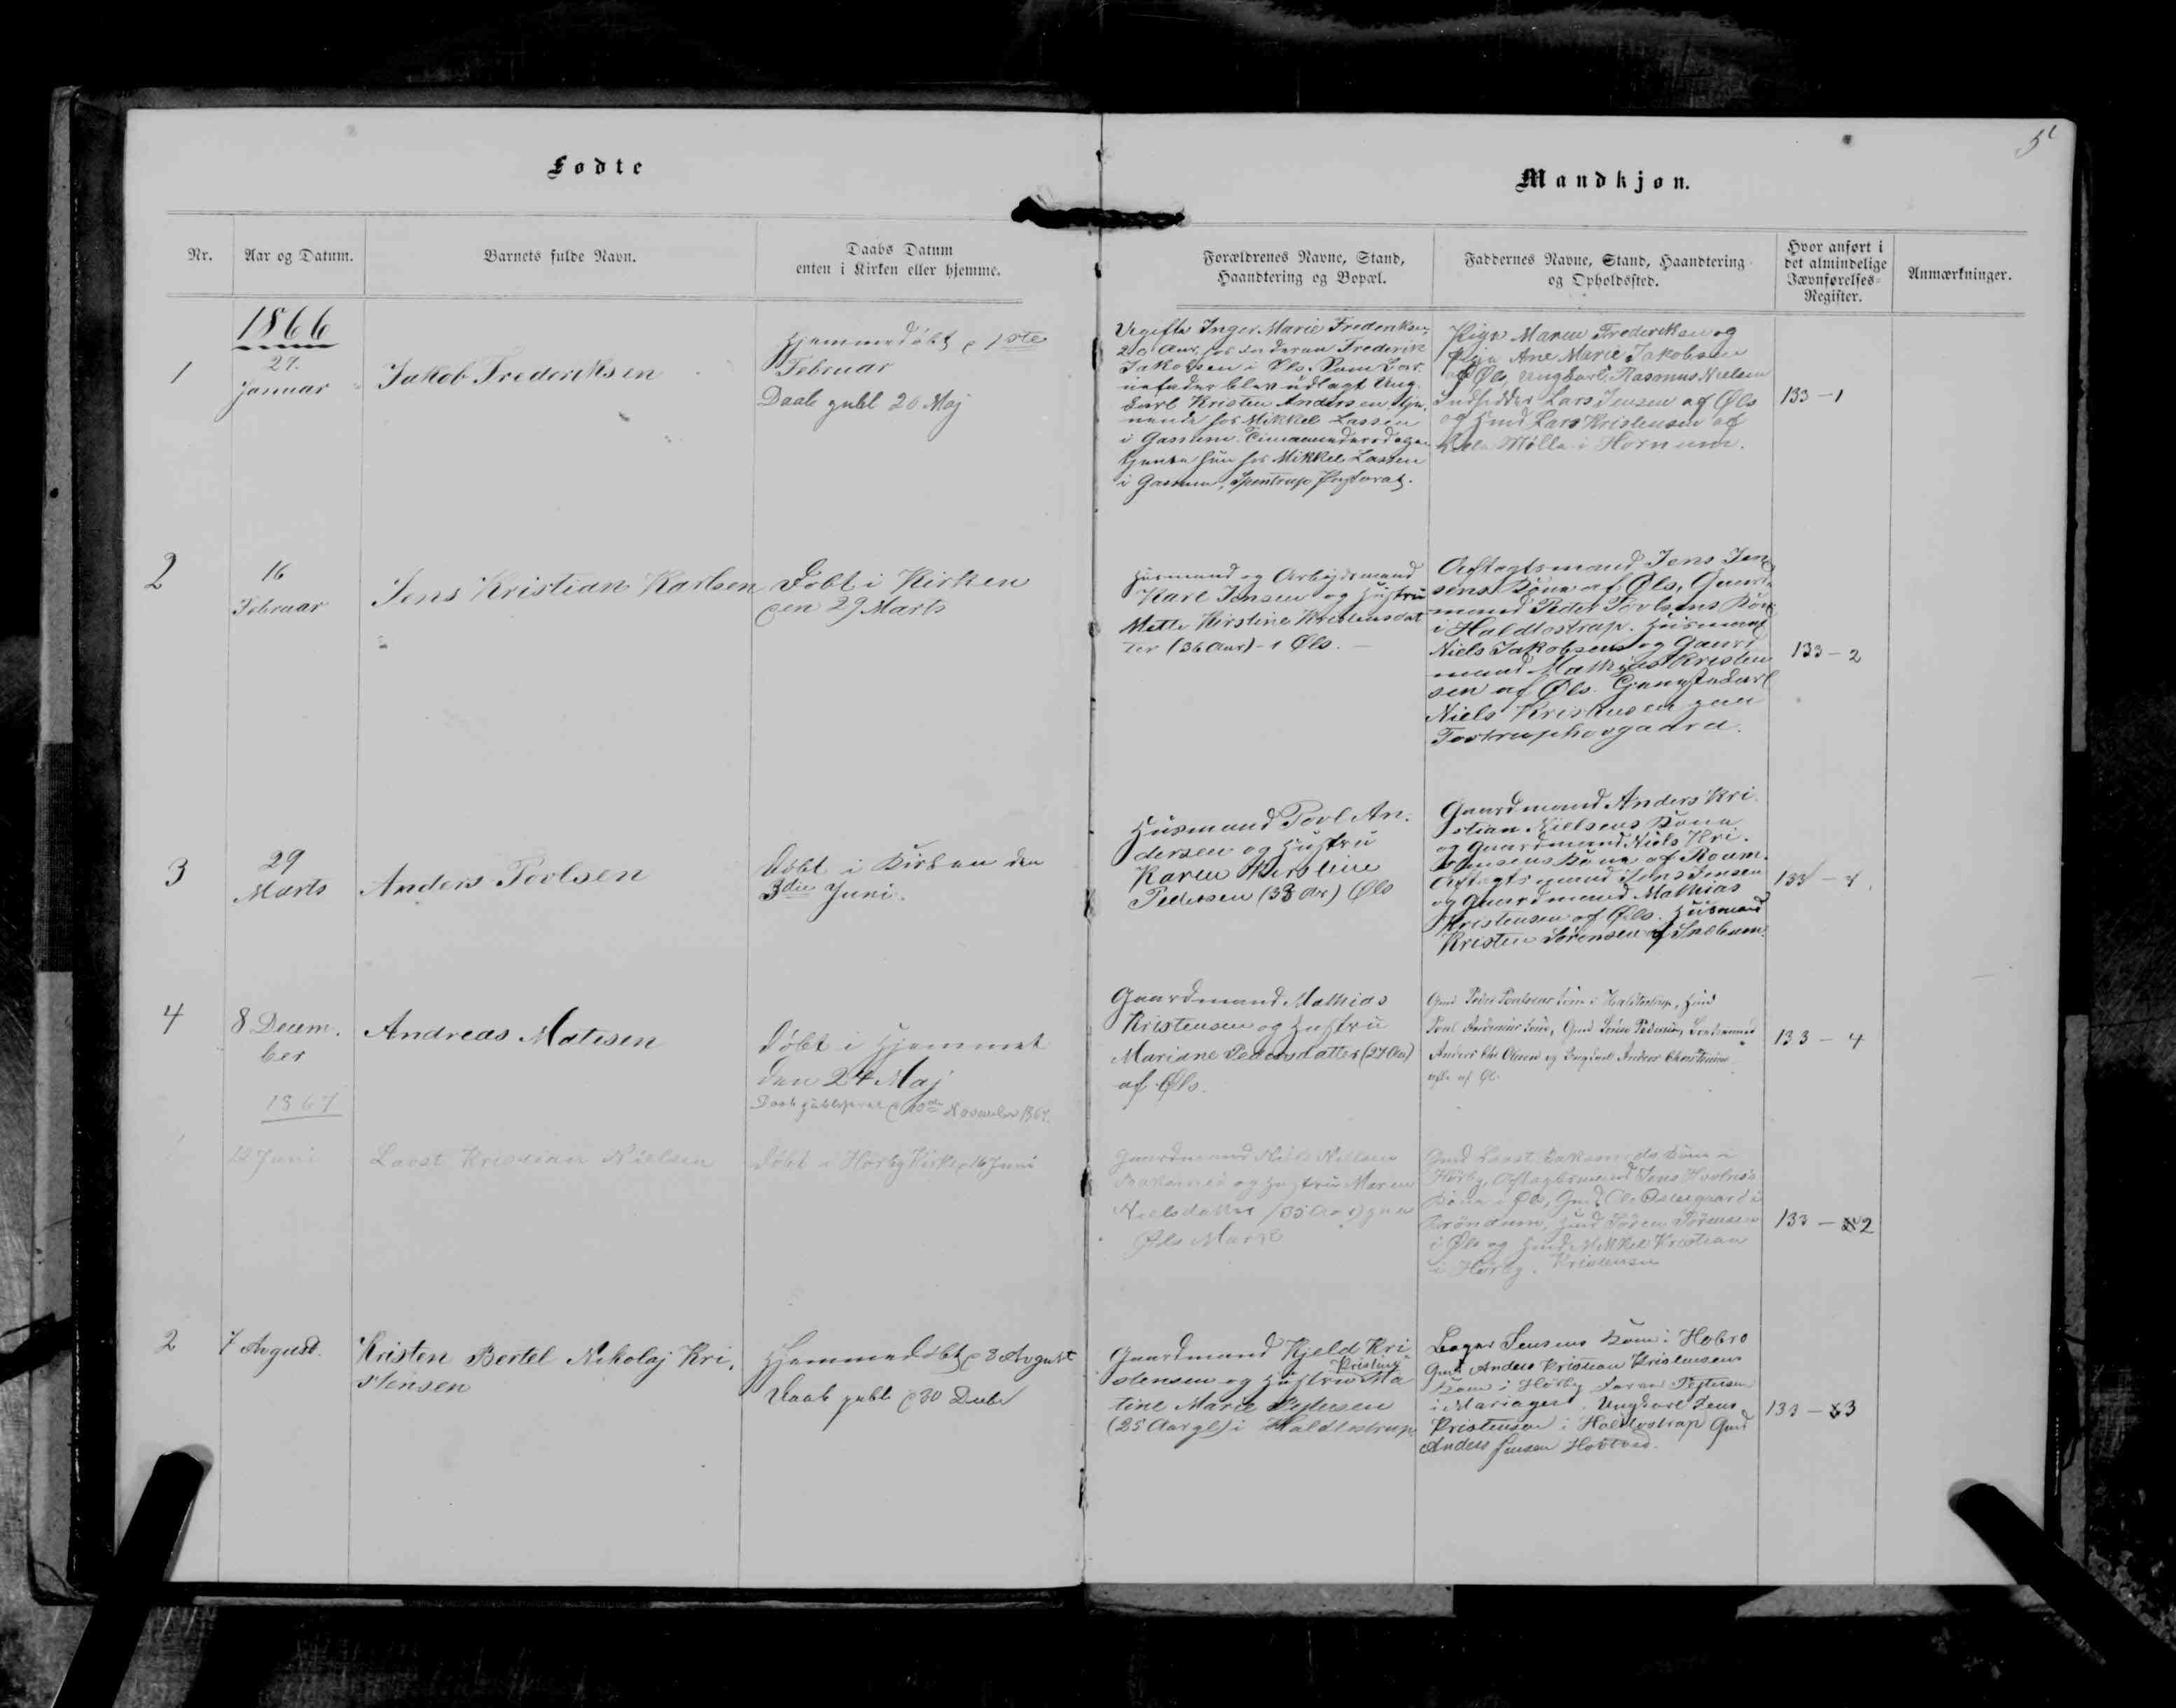 5
Fødte
Mandkjøn.
Nr.
Aar og Datum.
Barnets fulde Navn.
Daabs Datum
enten i Kirken eller hjemme.
Forældrenes Navne, Stand,
Haandtering og Bopæl.
Faddernes Navne, Stand, Haandtering
og Opholdssted.
Hvor anført i
det almindelige
Jævnførelses-
Register.
Anmærkninger.
1866
1
27.
Januar
Jakob Frederiksen
Hjemmedøbt d 1ste
Februar
Daab publ 20 Maj
Ugifte Inger Marie Frederiksen,
20 Aar, hos Faderen Frederik
Jakobsen i Øls. Som Bar-
nefader blev udlagt Ung-
karl Kristen Andersen, tje-
nende hos Mikkel Lassen
i Gassum. Timaanedersdagen
tjente hun hos Mikkel Lassen
i Gassum, Spentrup Pastorat.
Pige Maren Frederiksen og
Pige Ane Marie Jakobsen
af Øls, Ungkarl Rasmus Nielsen
Indsidder Lars Jensen af Øls
og Hmd Lars Kristensen af
Mølle i Hornum.
133-1
2
16
Februar
Jens Kristian Karlsen
Døbt i Kirken
den 29 Marts
Husmand og Arbejdsmand
Karl Jensen og Hustru
Mette Kirstine Kristensdat
ter (36 Aar) - i Øls.
Aftægtsmand Jens Jen
sens Kone af Øls, Gaard-
mand Peder Povlsens Kone
i Haldtostrup. Husmand
Niels Jakobsen og Gaard
mand Mathias Kristen
sen af Øls. Tjenestekarl
Niels Kristensen paa
Tostruphovgaard.
133-2
3
29
Marts
Anders Povlsen
Døbt i Kirken den
3die Juni.
Husmand Povl An-
dersen og Hustru
Karen Kirstine
Pedersen (33 Aar) Øls
Gaardmand Anders Kri
stian Nielsens Kone
og Gaardmand Niels Kri-
stensens Kone af Roum.
Aftægtsmand Jens Jensen
og Gaardmand Mathias
Kristensen af Øls. Husmand
Kristen Sørensen af Snæbum.
133-3
4
8 Decem-
ber
Andreas Matisen
Døbt i Hjemmet
den 24 Maj
Daab publiceret d 10de November 1867.
Gaardmand Mathias
Kristensen og Hustru
Mariane Pedersdatter (27 Aar)
af Øls.
Gmd Peder Poulsens Kone i Haldtostrup, Hmd
Poul Andersens Kone, Gmd Søren Pedersen,
Anders Chr Olesen og Ungkarl Anders Christensen
alle af Øls
133-4
1867
1
12 Juni
Lavst Kristian Nielsen
Døbt i Hørby Kirke d 16 Juni
Gaardmand Niels Nielsen
og Hustru Maren
Nielsdatter (35 Aar) paa
Øls Mark
Gmd Lavst Kone i
Hørby, Aftægtsmand Jens
Kone i Øls, Gmd Østergaard i
Grøndum, Hmd Søren Sørensen
i Øls og Hmd Mikkel Kristian
Kristensen
i Hørby.
133-2
2
7 August.
Kristen Bertel Nikolaj Kri-
stensen
Hjemmedøbt d 8 August
Daab publ d 30 Decbr
Gaardmand Kjeld Kri
stensen og Hustru Ma
Kristine
tine Marie Pejtersen
(25 Aar gl) i Haldtostrup
Bager Jensens Kone i Hobro
Gmd Anders Kristian Kristensens
Kone i Hørby Farver Pejtersen
i Mariager. Ungkarl Jens
Kristensen i Haldtostrup Gmd
Anders Jensen Hobtved.
133-3